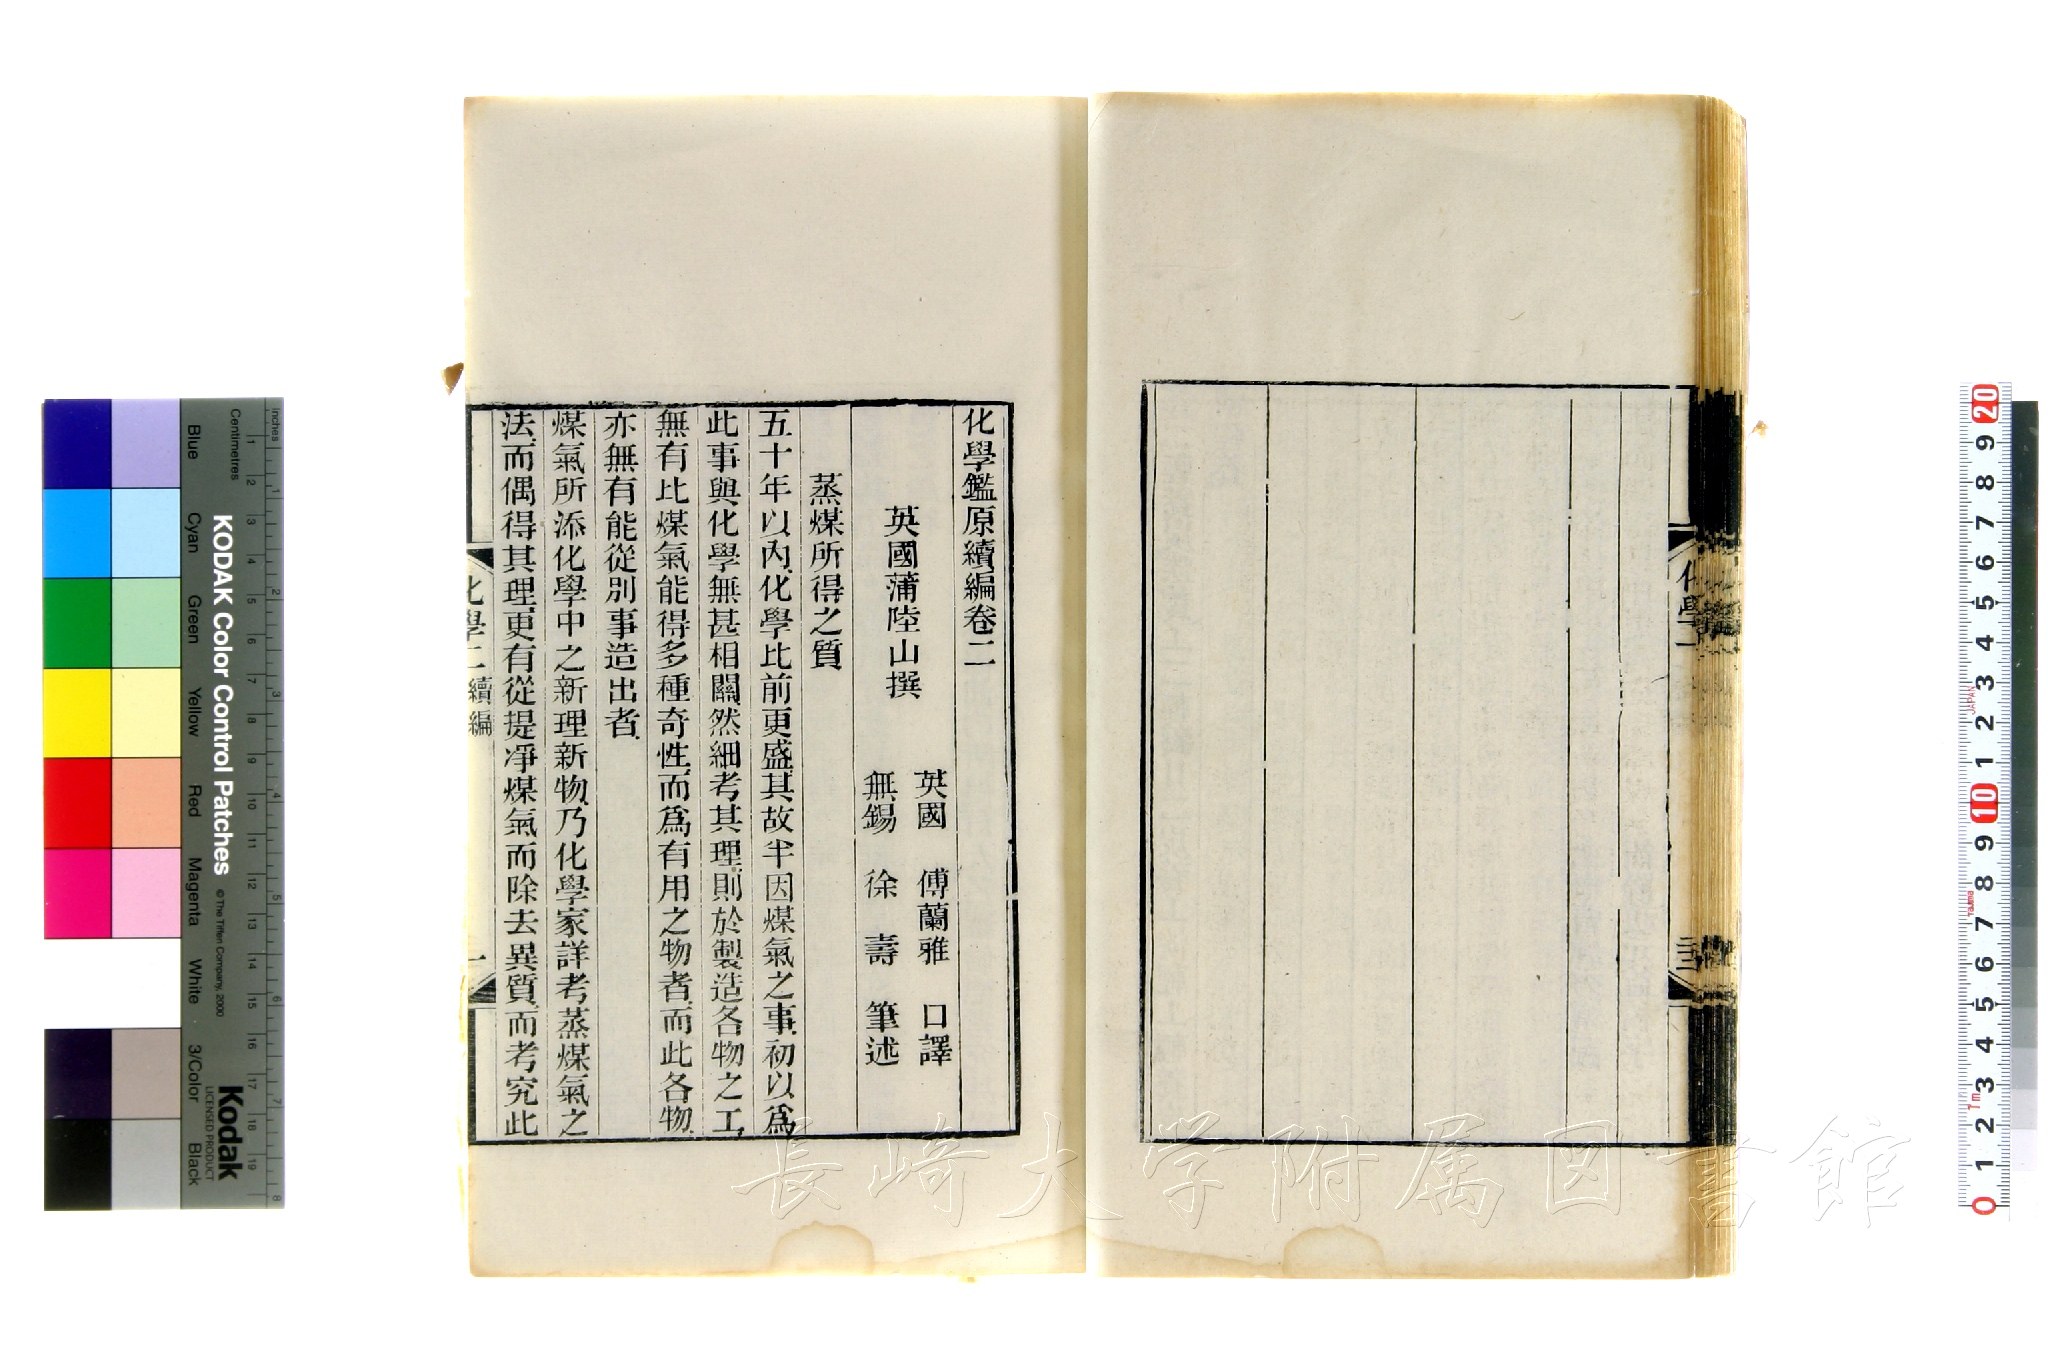 化學鑑原續編卷二
英國蒲陸山撰
英國 傅蘭雅 口譯
無錫 徐 壽 筆述
蒸煤所得之質
五十年以內化學比前更盛其故半因煤氣之事初以爲
此事與化學無甚相關然細考其理則於製造各物之工
無有比煤氣能得多種奇性而爲有用之物者而此各物
亦無有能從別事造出者
煤氣所添化學中之新理新物乃化學家詳考蒸煤氣之
法而偶得其理更有從提凈煤氣而除去異質而考究此
化學二 續編
一
化學一
長崎大学附属図書館
inches
Centimetres
KODAK Color Control Patches
© The Tiffen Company, 2000
Blue
Cyan
Green
Yellow
Red
Magenta
White
3/Color
Black
Kodak
LICENSED PRODUCT
1 2 3 4 5 6 7 8
1 2 3 4 5 6 7 8 9 10 11 12 13 14 15 16 17 18 19
20 9 8 7 6 5 4 3 2 1 10 9 8 7 6 5 4 3 2 1 0
JAPAN